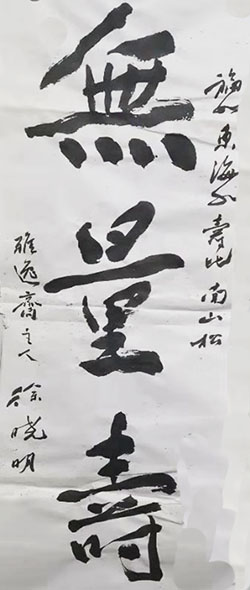 福如東海水壽比南山松
無量壽
雅逸齋主人 徐曉明